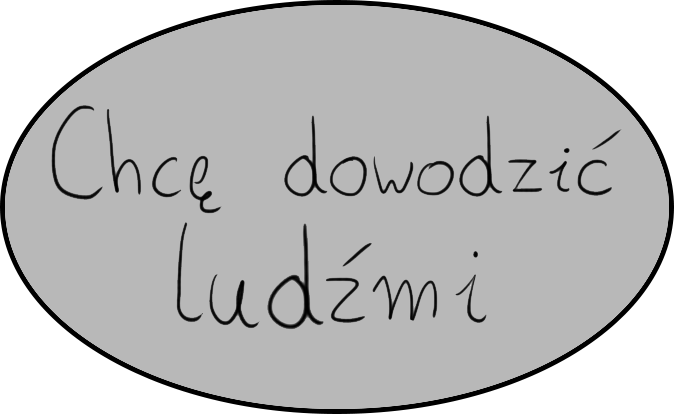 Chcę dowodzić
ludźmi